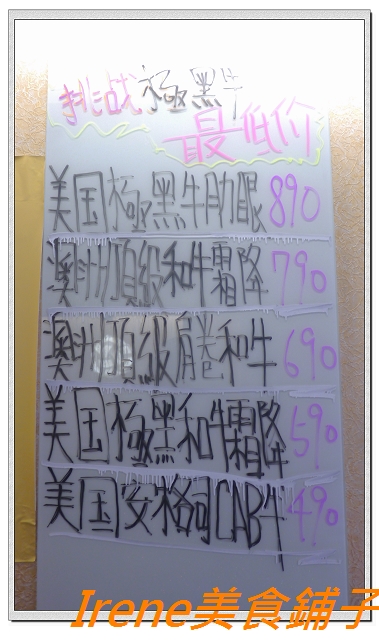 挑战極黑牛
最低价
美国極黑牛肋眼890
澳洲頂級和牛霜降790
澳洲頂級肩卷和牛690
美国極黑和牛霜降590
美国安格司CAB牛490
Irene美食鋪子